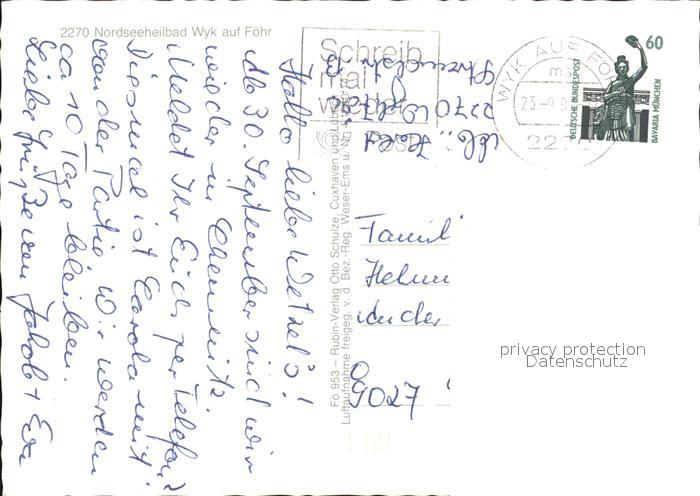 2270 Nordseeheilbad Wyk auf Föhr
Hallo liebe Wetzel's!
Ab 30. September sind wir
wieder in Chemnitz.
Meldet Ihr Euch per Telefon?
Diesmal ist Carola mit
von der Partie. Wir werden
ca 10 Tage bleiben.
Liebe Grüße von
Fö 953 – Rubin-Verlag Otto Schulze, Cuxhaven und
Luftaufnahme freigeg. v. d. Bez.-Reg. Weser-Ems u. Nr.
Schreib
mal
wieder
Post
2270 Wyk
WYK AUF FÖ
23.-9.
2270
60
DEUTSCHE BUNDESPOST
BAVARIA MÜNCHEN
Famil
Helmu
An der
O
9027
privacy protection
Datenschutz